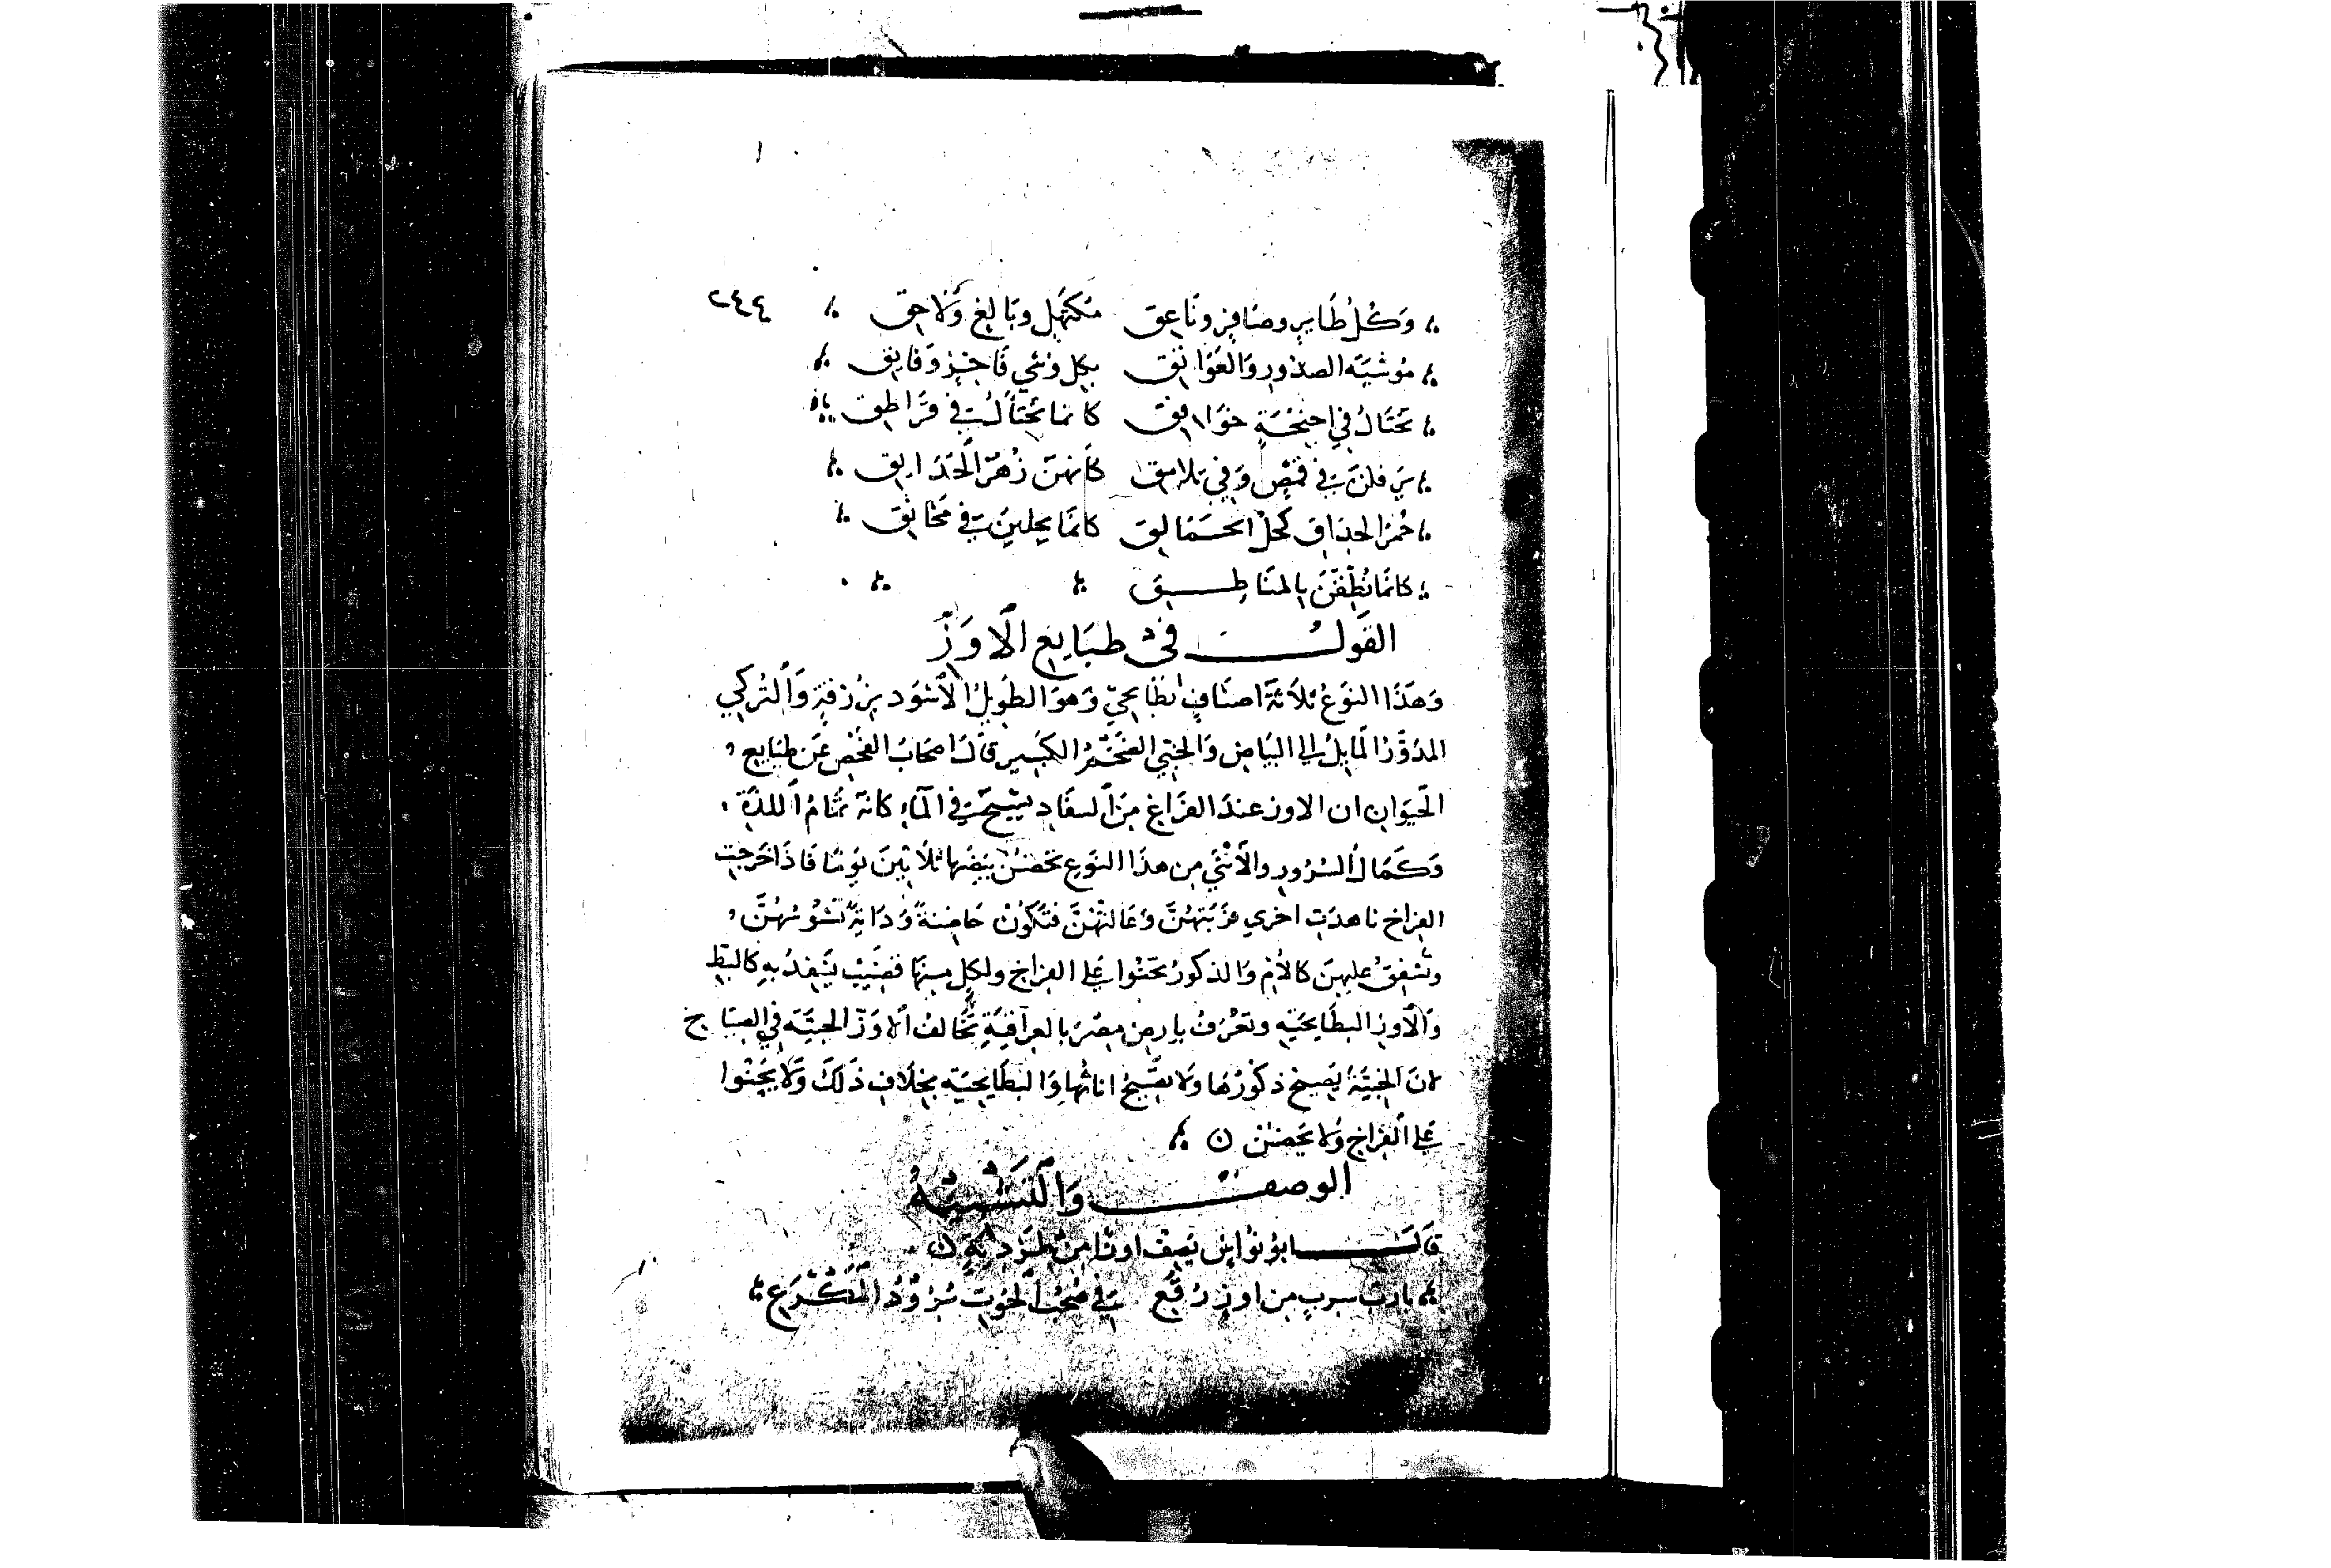 ٢٤٤
وَكُلُ طَايرٍ وصَافِرٍ ونَاعِق مُكتَهِل وبَالِغ وَلَاحِق
مُوشيَة الصدُورِ وَالعَوَاتِق بكل وَشي فَاخِرٍ وَفَايِق
تَختَالُ في اجنِحَةٍ خوَافِق كانما تختَالُ في قَرَاطِق
يَرفلنَ في قمُصٍ وَفي يَلامِق كَانهنّ زَهرَ الحَدَايِق
حُمرُ الحِدَاقِ كُحل الحَمَالِق كانمَا يحلينَ في مخَانِق
كانمَا نُطِّقنَ بالمنَاطِق
القَولُ في طبَايع الاوَزّ
وَهَذَا النوَعُ ثلاثَةَ اصنَافٍ بَطَايحيّ وَهوَ الطويلُ الأسْوَد بزُرقةٍ وَالتُركي
المدُوَّرُ المايلُ الي البَيَاضِ وَالخِبّي الضخْمُ الكبير قالَ اصحَابُ الفَحْصِ عَن طبَايع
الحَيَوَانِ ان الاوز عندَ الفرَاغ مِنَ السفَادِ يَسْبَحُ في المآءِ كانهَ تمَّامُ اللذَّة
وَكَمَالُ السُرُورِ والأنثي مِن هذَا النوَع تحضنُ بيضَها ثلاثينَ يَومًا فَاذَا خَرَجت
الفراخ ناهدَت اخري فرَبَتهنَّ وعَالتهُنَّ فتكَونُ حَاضِنةً وَدَايَةً تسُوسُهُنَّ
وتُشفِقُ عليهنَ كالأُمْ وَالذكورُ تحنُوا عَلي الفراخ ولكلٍ مِنهَا قضَيبٌ يَسفِدُ بهِ كالبَطِ
وَالاوزِ البطَايحيَّه وتعْرَفُ بارضِ مِصْرَ بالعِرَاقيَةِ تخَالفُ الاوَزّ الخبيَّة في الصيَاح
لانَ الخِبيَّةُ يَصِيح ذكورُها ولا يَصيحُ اناثُها وَالبطَايحيَّه بخلَافِ ذَلكَ وَلا يَحنُوا
عَلي الفِرَاخ وَلا يَحضنْ
الوصفُ وَالتَشْبيْهُ
قالَ ابُو نوُاسٍ يَصِفُ اوزًا مِنْ طَرَدِيَّةٍ
يارُب سربٍ مِن اوزٍ رُقَّع